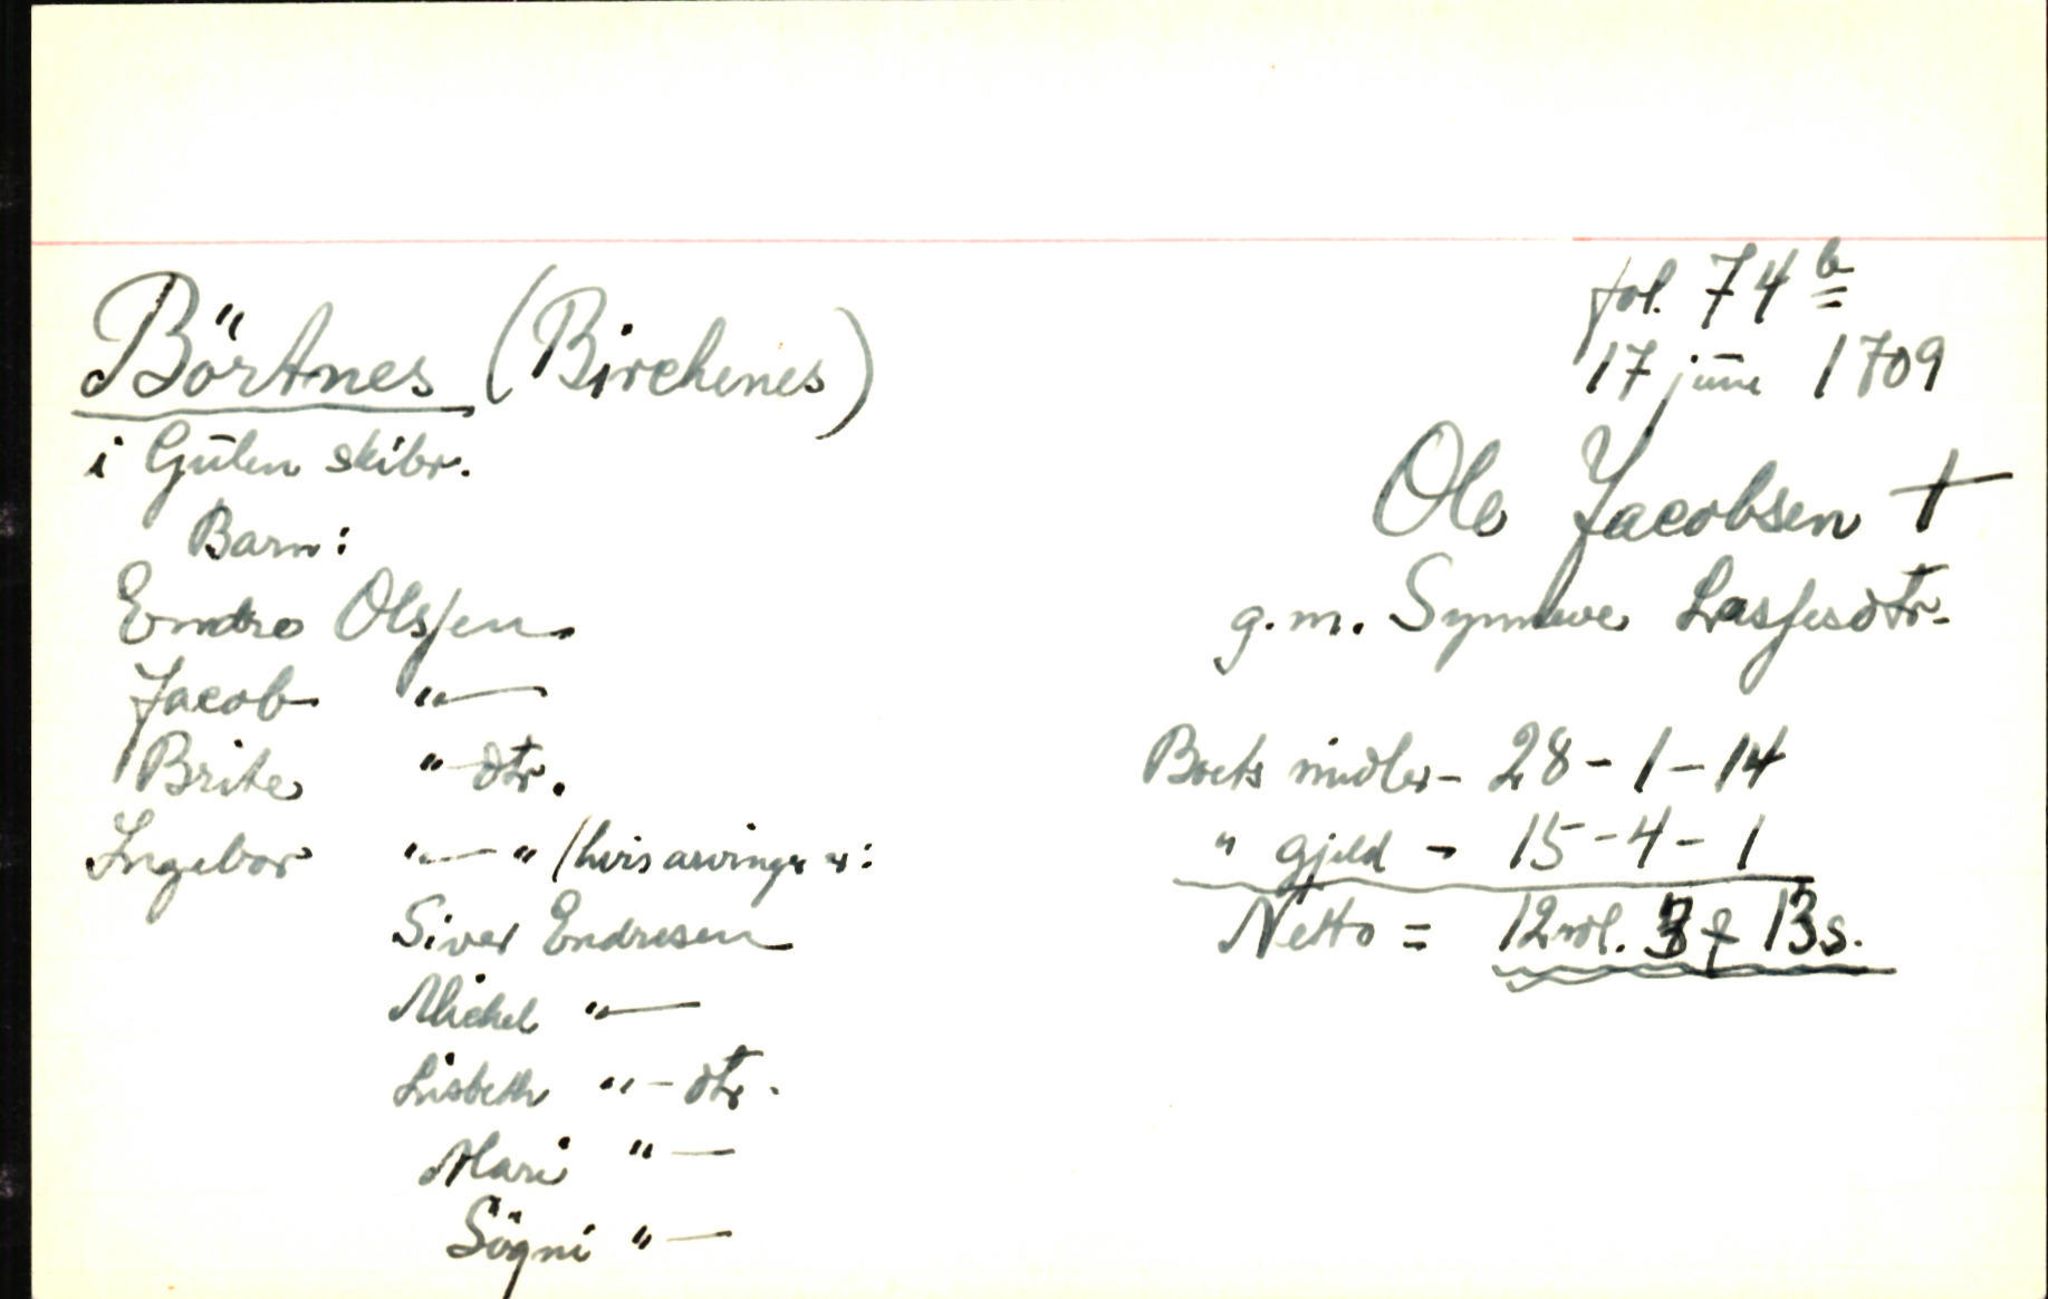 fol. 74 b
Börtnes (Birchenes)
17 juni 1709
i Gulen skibr.
Ole Jacobsen +
Barn:
Endre Olssen
g.m. Synneve Lassesdtr.
Jacob "—
Brite "-dtr.
Boets midler - 28 - 1 - 14
Ingebor "—" / hvis arvinger er:
" gjeld - 15 - 4 - 1
Siver Endresen
Netto = 12 rdl. 3 13 s.
Michel "—
Lisbeth " - dtr.
Mari " —
Sögni " —